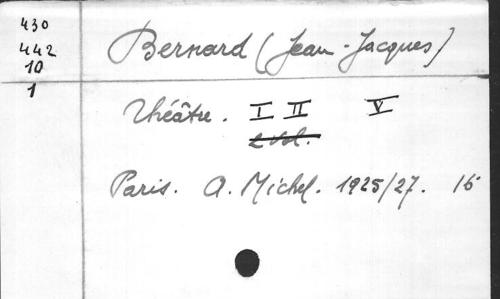 430
442
10
1
Bernard (Jean-Jacques)
Théâtre. I II V
2 vol.
Paris. A. Michel. 1925/27. 16